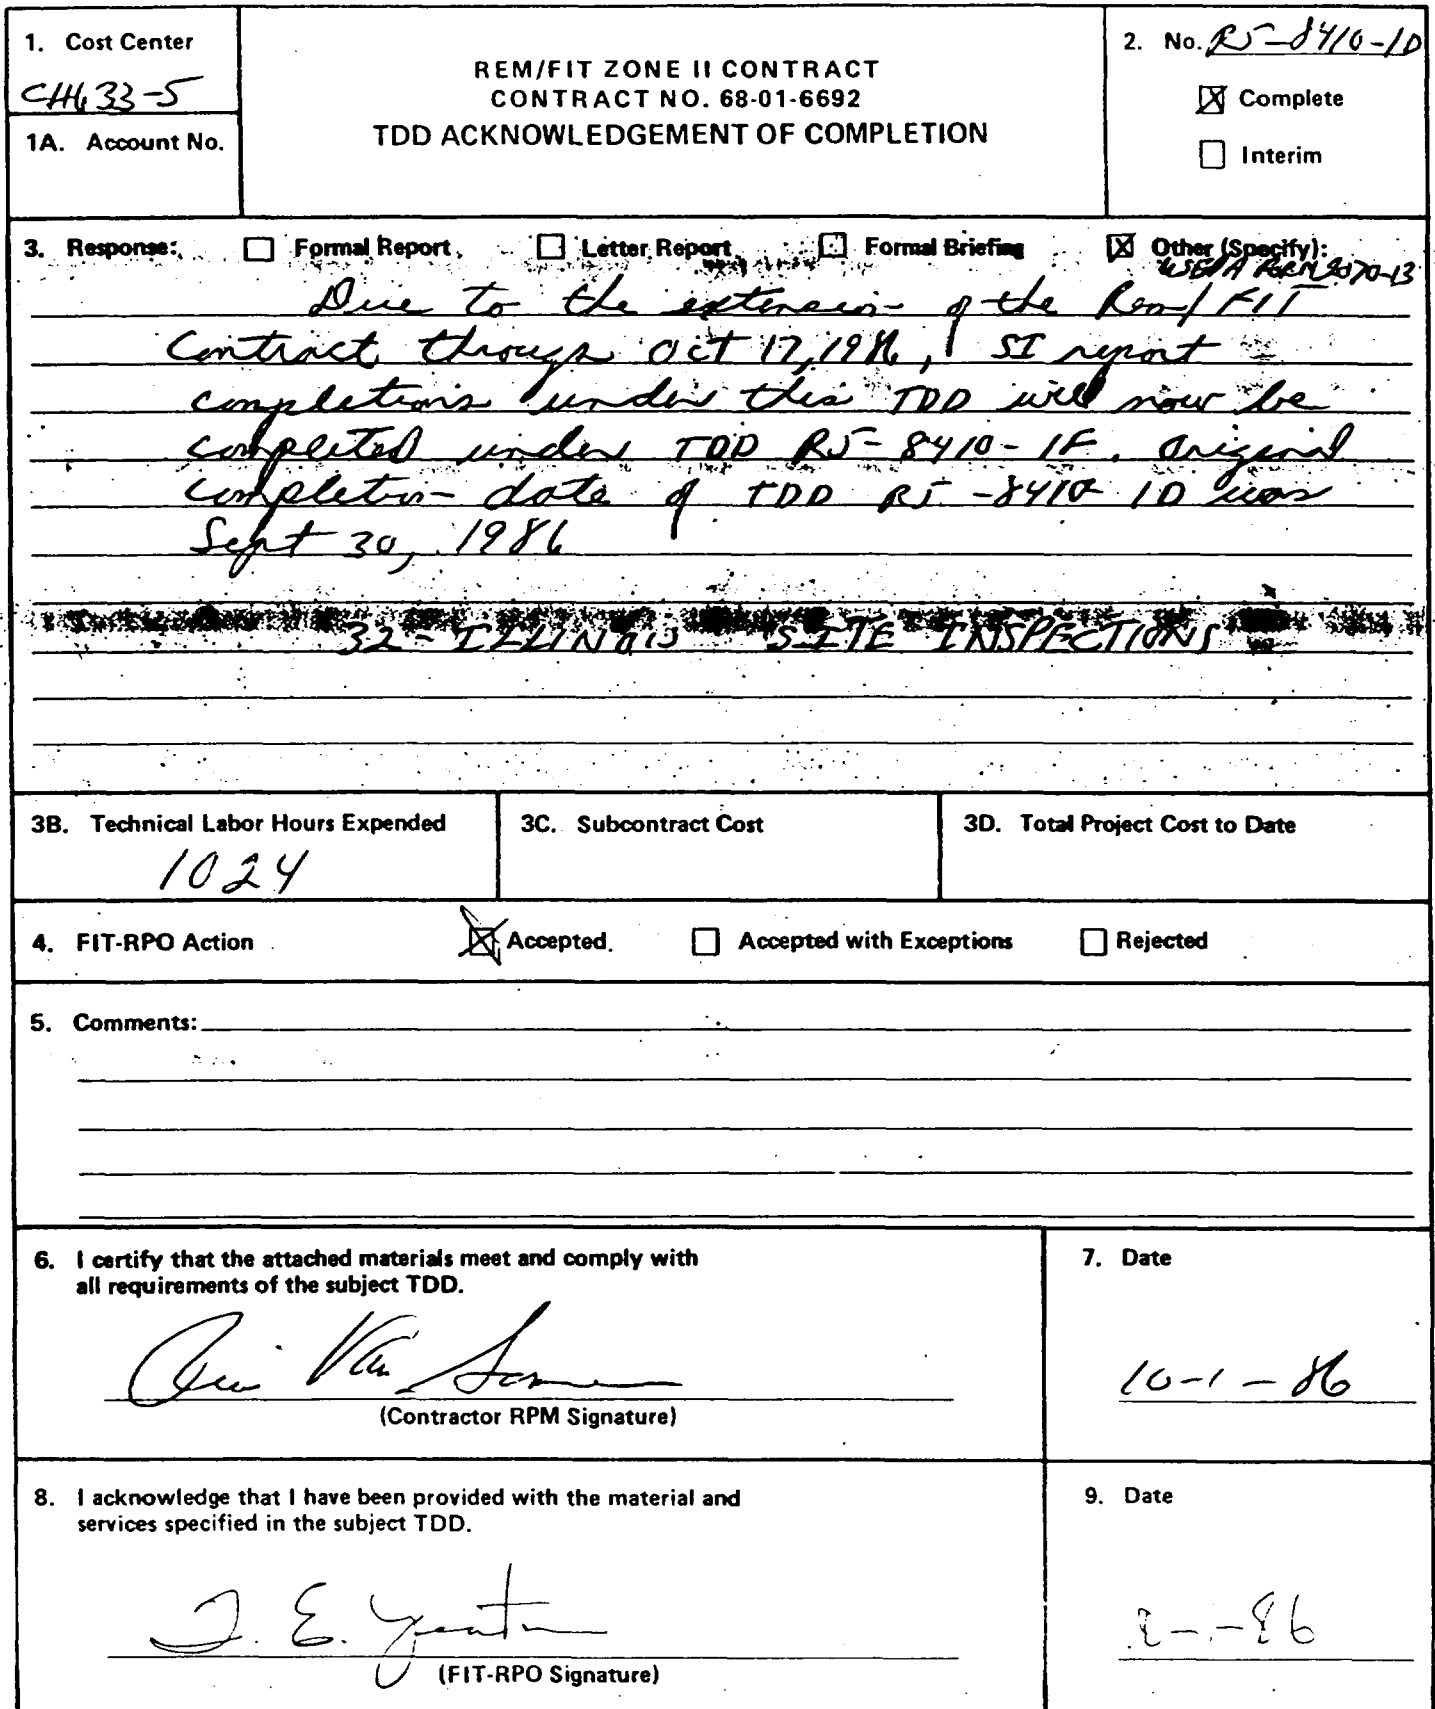 1. Cost Center
CH633-5
1A. Account No.
REM/FIT ZONE II CONTRACT
CONTRACT NO. 68-01-6692
TDD ACKNOWLEDGEMENT OF COMPLETION
2. No. R5-8410-1D
Complete
Interim
3. Response: Formal Report Letter Report Formal Briefing Other (Specify):
USEPA FORM 2070-13
Due to the extension of the Rem/FIT
Contract through Oct 17, 1986, SI report
completions under this TDD will now be
completed under TDD R5-8410-1F. Original
completion date of TDD R5-8410-1D was
Sept 30, 1986
32-ILLINOIS SITE INSPECTIONS
3B. Technical Labor Hours Expended
1024
3C. Subcontract Cost
3D. Total Project Cost to Date
4. FIT-RPO Action Accepted Accepted with Exceptions Rejected
5. Comments:
6. I certify that the attached materials meet and comply with
all requirements of the subject TDD.
Van
(Contractor RPM Signature)
7. Date
10-1-86
8. I acknowledge that I have been provided with the material and
services specified in the subject TDD.
E.
(FIT-RPO Signature)
9. Date